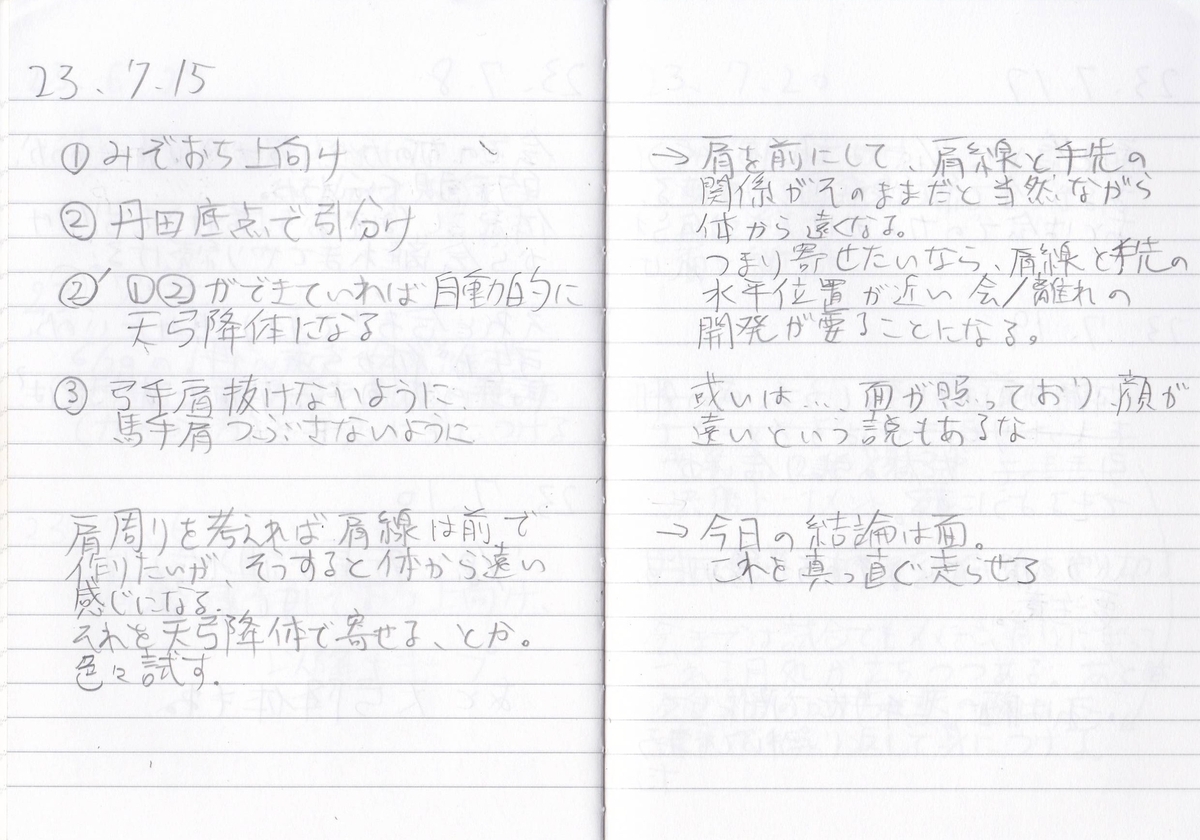 23.7.15
① みぞおち上向け
② 丹田底点で引分け
②′ ①②ができていれば自動的に
天弓降体になる
③ 弓手肩抜けないように、
馬手肩つぶさないように
肩周りを考えれば肩線は前で
作りたいが、そうすると体から遠い
感じになる.
それを天弓降体で寄せる、とか。
色々試す.
→ 肩を前にして、肩線と手先の
関係がそのままだと当然ながら
体から遠くなる。
つまり寄せたいなら、肩線と手先の
水平位置が近い会/離れの
開発が要ることになる。
或いは... 面が照っており顔が
遠いという説もあるな
→ 今日の結論は面。
これを真っ直ぐ走らせる